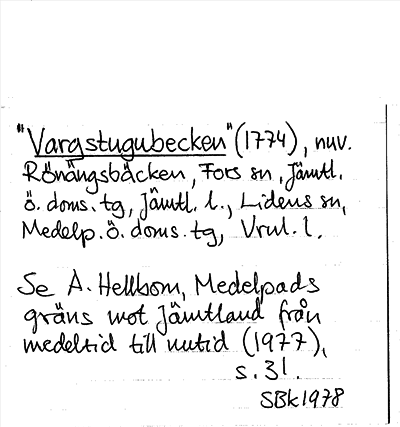 "Vargstugubecken" (1774), nuv.
Rönängsbäcken, Fors sn, Jämtl.
ö. doms. tg, Jämtl. l., Lidens sn,
Medelp. ö. doms. tg, Vrnl. l.
Se A. Hellbom, Medelpads
gräns mot Jämtland från
medeltid till nutid (1977),
s. 31.
SBk1978